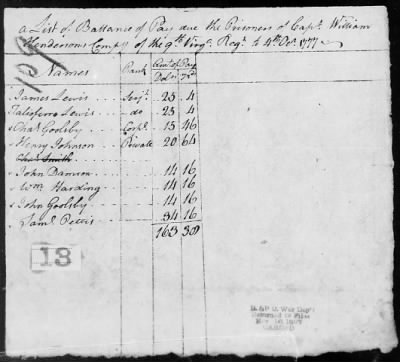 a List of Ballance of Pay due the Prisoners of Capt. William
Hendersons Compy of the 9th Virga. Regt. to 4th Oct. 1777
Names Rank Amt. of Pay
Dolrs 72ds
James Lewis Serjt. 23 4
Taliferro Lewis do 23 4
Chas Goolsby Corpl. 15 46
Henry Johnson Private 20 64
Chas Smith
John Dawson 14 16
Wm. Harding 14 16
John Goolsby 14 16
Saml. Pettis 34 16
163 38
13
R & P O. War Dept
Returned to Files